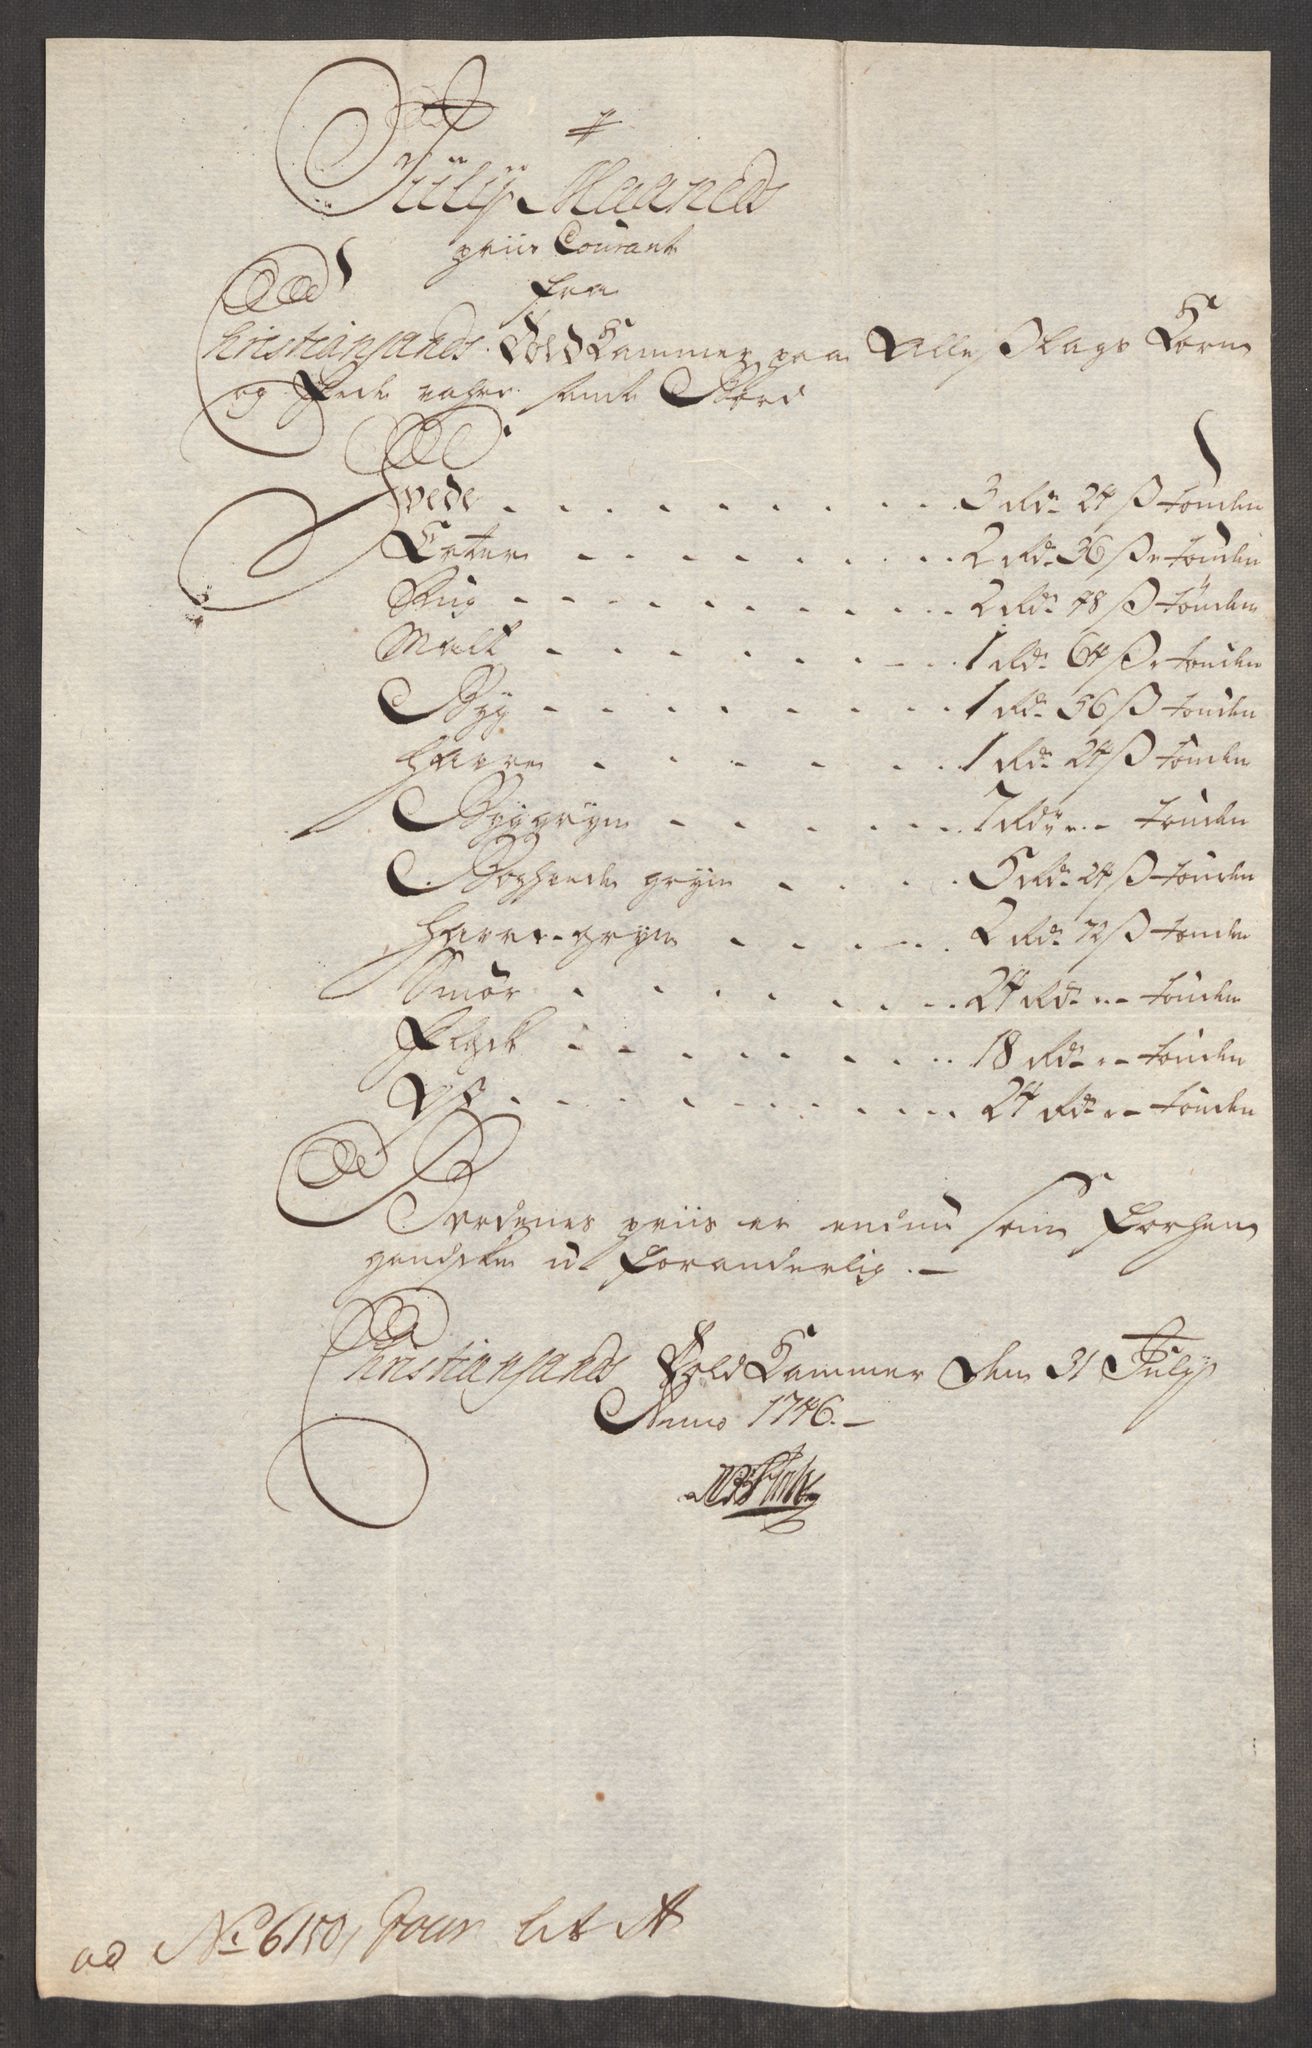 Jülÿ Maaneds
priis Courant
fra
Christiansands Told Kammer paa Alle Slags Korn
og Fede vahre samt Bord
Hvede . . . . . . . . . 3 Rdr 24 ß Tønden
Erter . . . . . . . . 2 Rdr 36 ß Tønden
Rug . . . . . . . . . 2 Rdr 48 ß Tønden
Malt . . . . . . . . 1 Rdr 64 ß Tønden
Byg . . . . . . . . . 1 Rdr 56 ß Tønden
Havre . . . . . . . 1 Rdr 24 ß Tønden
Byggryn . . . . . . 7 Rdr „ - Tønden
Boghvede gryn . . . . 5 Rdr 24 ß Tønden
Havre-gryn . . . . 2 Rdr 72 ß Tønden
Smør . . . . . . . . 24 Rdr „ - Tønden
Flesk . . . . . . . . 18 Rdr „ - Tønden
. . . . . . . . . 24 Rdr „ - Tønden
Bordenes priis er endnu som forhen
gandske u foranderlig . -
Christiansands Told Kammer Den 31 Julÿ
Anno 1746. -
ad No 6150, Jour Lit A